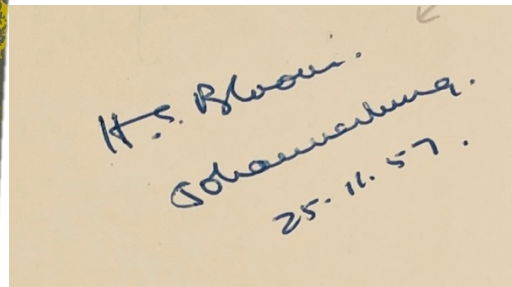 H.S. Bloom.
Johannesburg.
25.11.57.